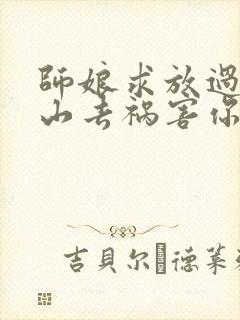 師娘求放過
山去禍害你
吉貝尔德萊